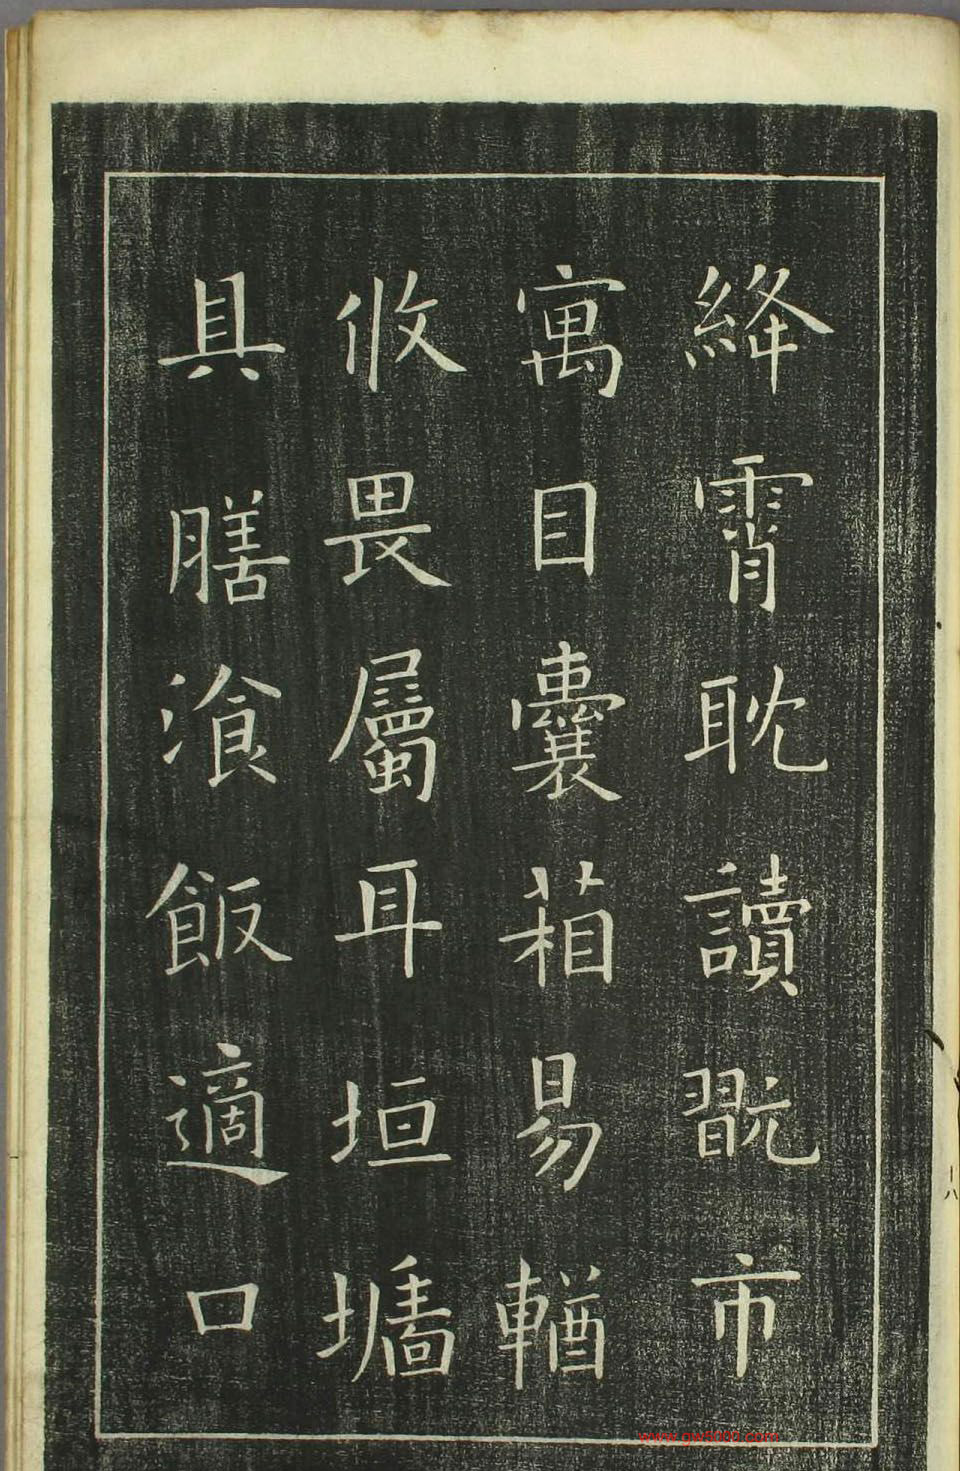 絳霄耽讀翫市
寓目囊葙易輶
攸畏屬耳垣墻
具膳飡飯適口
www.gw5000.com